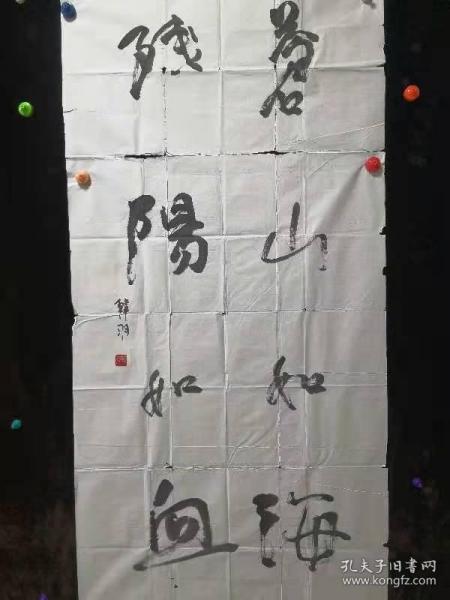 蒼山如海
殘陽如血
韓羽
孔夫子旧书网
www.kongfz.com